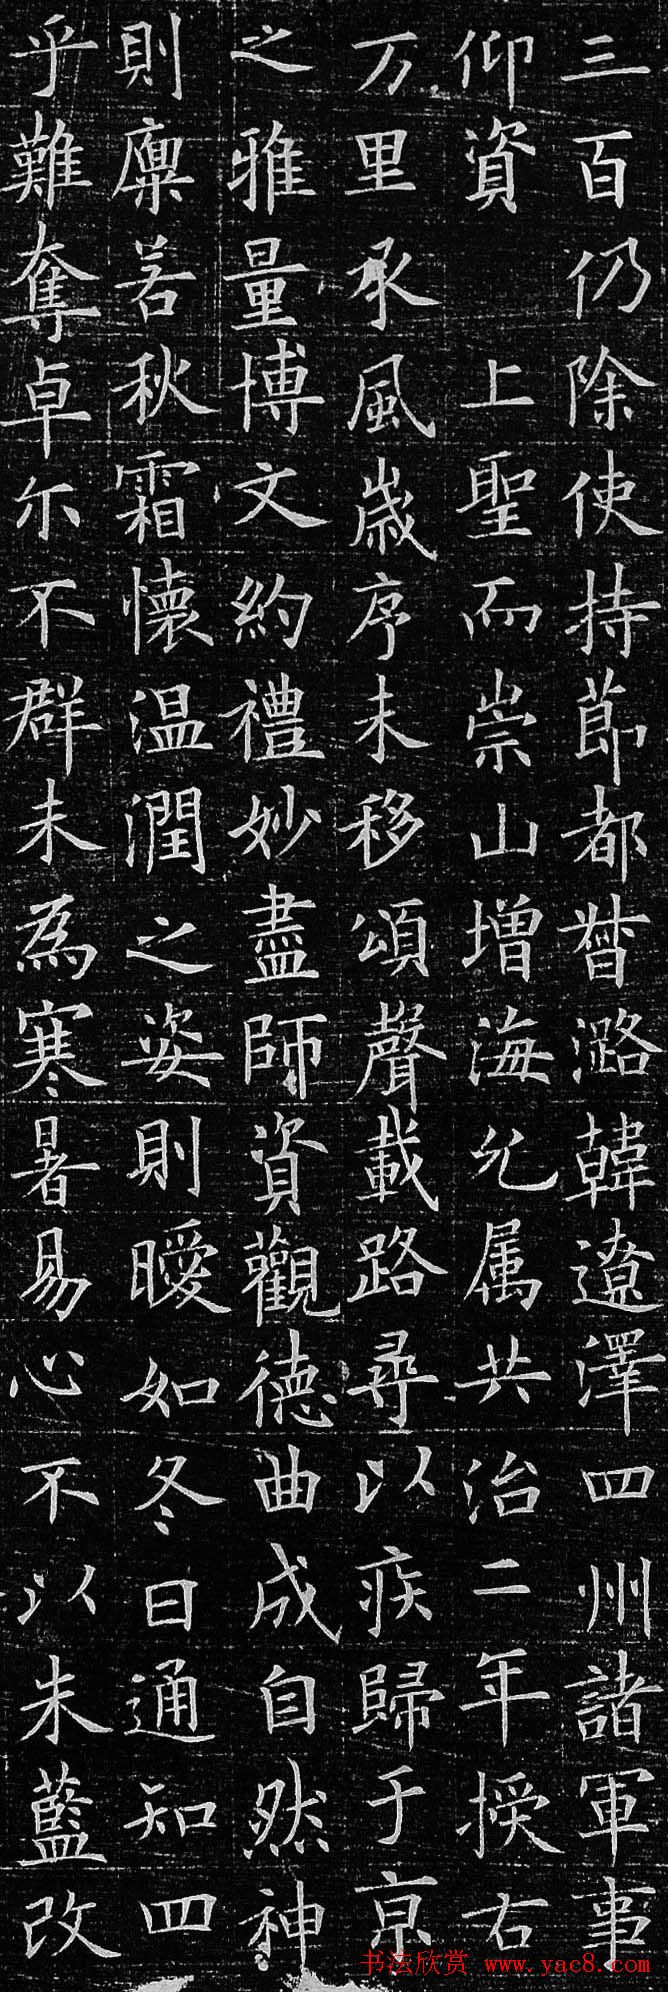 三百仍除使持節都督潞韓遼澤四州諸軍事
仰資 上聖而崇山增海允属共治二年授右
万里承風歳序未移頌聲載路尋以疾歸于京
之雅量博文約禮妙盡師資觀德曲成自然神
則廩若秋霜懷温潤之姿則曖如冬日通知四
乎難奪卓尓不群未為寒暑易心不以朱藍改
书法欣赏 www.yac8.com